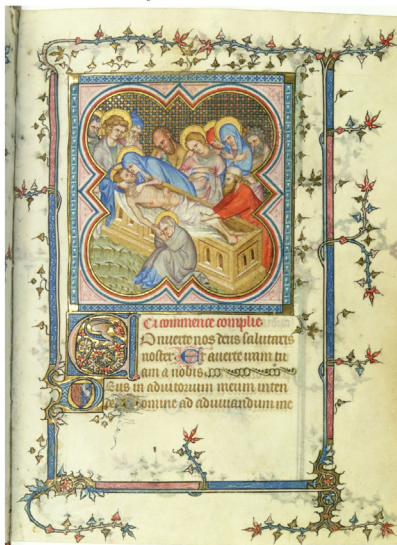 Ci commence complie
Onuerte nos deus salutaris
noster. Et auerte iram tu
am a nobis
eus in adiutorium meum inten
de domine ad adiuuandum me